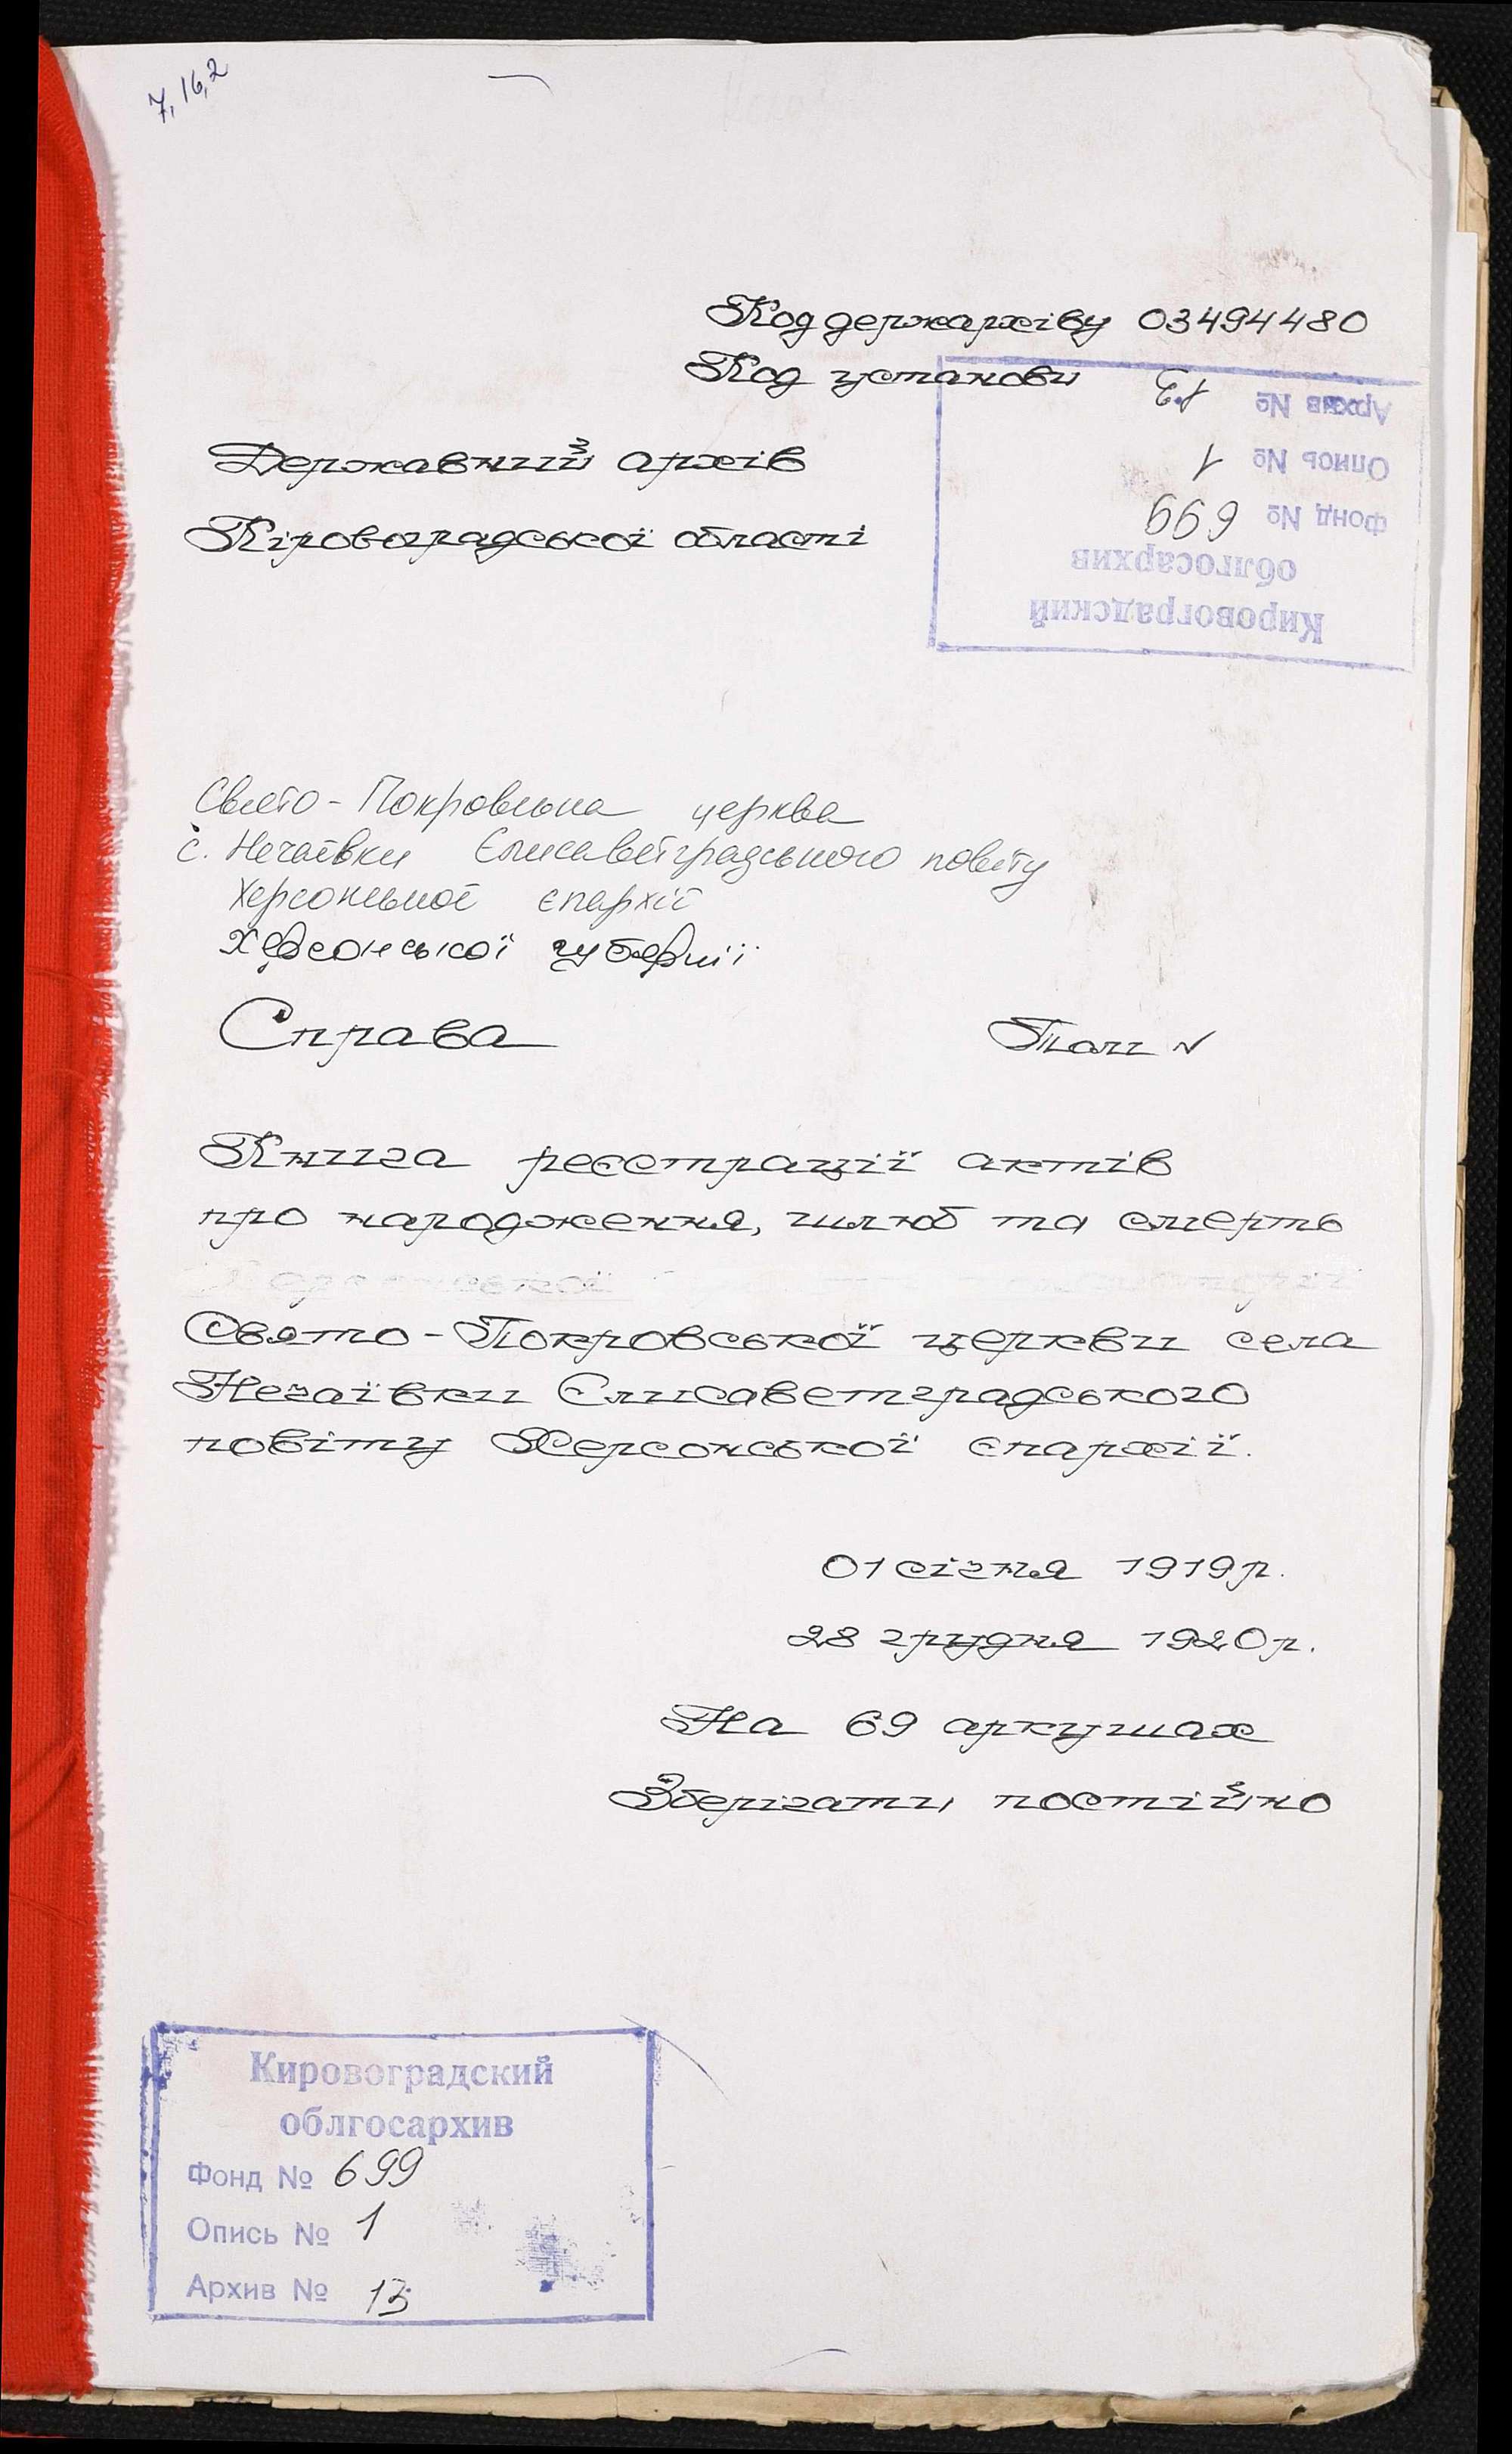 7, 16, 2
Код держархіву 03494480
Код установи
Державний архів
Кіровоградської області
Архив № 13
Опись № 1
Фонд № 699
облгосархив
Кировоградский
Свято-Покровська церква
с. Нечаївки Єлисаветградського повіту
Херсонської єпархії
Херсонської губернії
Справа Том №
Книга реєстрації актів
про народження, шлюб та смерть
Свято-Покровської церкви села
Нечаївки Єлисаветградського
повіту Херсонської єпархії.
01 січня 1919 р.
28 грудня 1920 р.
На 69 аркушах
Зберігати постійно
Кировоградский
облгосархив
Фонд № 699
Опись № 1
Архив № 13